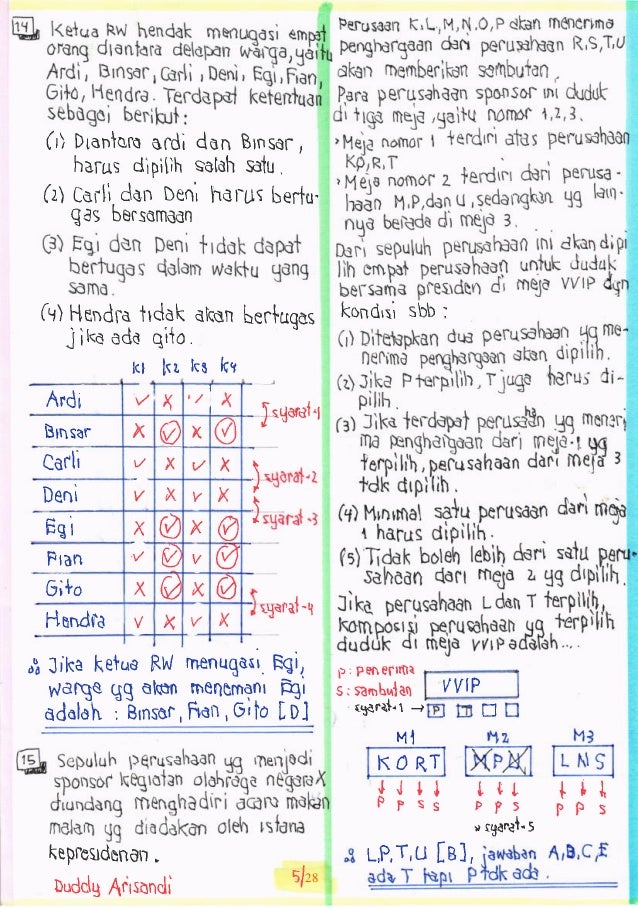 14. Ketua RW hendak menugasi empat
orang diantara delapan warga, yaitu
Ardi, Binsar, Carli, Deni, Egi, Fian,
Gito, Hendra. Terdapat ketentuan
sebagai berikut:
(1) Diantara ardi dan Binsar,
harus dipilih salah satu.
(2) Carli dan Deni harus bertu-
gas bersamaan
(3) Egi dan Deni tidak dapat
bertugas dalam waktu yang
sama.
(4) Hendra tidak akan bertugas
jika ada gito.
K1 K2 K3 K4
Ardi ✓ X ✓ X
Binsar X ✓ X ✓
syarat-1
Carli ✓ X ✓ X
Deni ✓ X ✓ X
syarat-2
Egi X ✓ X ✓
syarat-3
Fian ✓ ✓ ✓ ✓
Gito X ✓ X ✓
Hendra ✓ X ✓ X
syarat-4
∴ Jika ketua RW menugasi Egi,
warga yg akan menemani Egi
adalah : Binsar, Fian, Gito [D]
15. Sepuluh perusahaan yg menjadi
sponsor kegiatan olahraga negara X
diundang menghadiri acara makan
malam yg diadakan oleh istana
kepresidenan.
Duddy Arisandi
5/28
Perusaan K,L,M,N,O,P akan menerima
penghargaan dan perusahaan R,S,T,U
akan memberikan sambutan.
Para perusahaan sponsor ini duduk
di tiga meja, yaitu nomor 1,2,3.
> Meja nomor 1 terdiri atas perusahaan
K,O,R,T
> Meja nomor 2 terdiri dari perusa-
haan M,P,dan U, sedangkan yg lain-
nya berada di meja 3.
Dari sepuluh perusahaan ini akan dipi
lih empat perusahaan untuk duduk
bersama presiden di meja VVIP dgn
kondisi sbb :
(1) Ditetapkan dua perusahaan yg me-
nerima penghargaan akan dipilih.
(2) Jika P terpilih, T juga harus di-
pilih.
(3) Jika terdapat perusahaan yg meneri
ma penghargaan dari meja-1 yg
terpilih, perusahaan dari meja 3
tdk dipilih.
(4) Minimal satu perusaan dari meja
1 harus dipilih.
(5) Tidak boleh lebih dari satu peru-
sahaan dari meja 2 yg dipilih.
Jika perusahaan L dan T terpilih,
komposisi perusahaan yg terpilih
duduk di meja VVIP adalah ....
P : Penerima
S : Sambutan
VVIP
syarat-1 → P
M1 M2 M3
K O R T M P U L N S
P P S S P P S P P S
syarat-5
∴ L,P,T,U [B], jawaban A,B,C,E
ada T tapi P tdk ada.